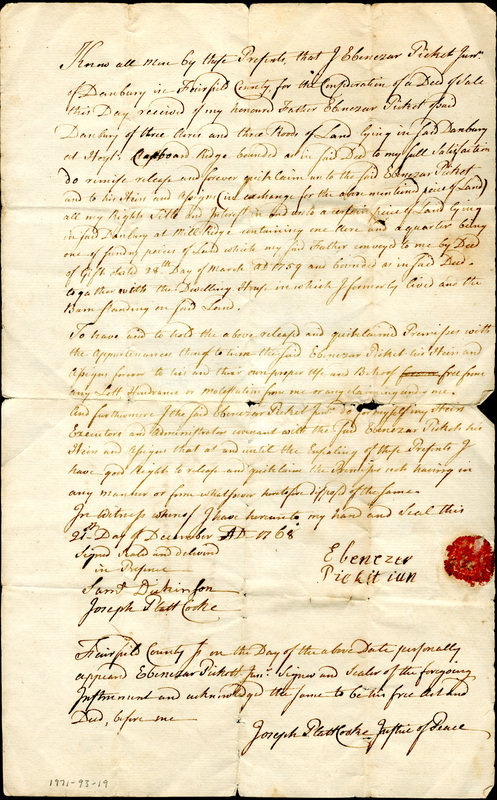 Know all Men by these Presents, that I Ebenezar Picket Junr.
of Danbury in Fairfield County, for the Consideration of a Deed of Sale
this Day received of my honoured Father Ebenezar Picket of said
Danbury of three Acres and three Roods of Land lying in said Danbury
at Hoyts Ridge bounded as in said Deed to my full Satisfaction
do remise release and forever quit claim unto the said Ebenezar Picket
and to his Heirs and Assigns (in exchange for the above mentiond piece of Land)
all my Right Title and Interest in and unto a certain piece of Land lying
in said Danbury at Mill Ridge containing one Acre and a quarter being
one of sundry pieces of Land which my said Father conveyed to me by Deed
of Gift dated 28th Day of March AD 1759 and bounded as in said Deed.
together with the Dwelling House in which I formorly lived and the
Barn standing on said Land.
To have and to hold the above released and quitclaimed Premisses with
the Appurtenances thereof to him the said Ebenezar Picket his Heirs and
Assigns forever to his and their own proper Use and Behoof free from
any Lett Hindrance or Molestation from me or any claiming under me.
And furthermore I the said Ebenezar Picket junr do for my self my Heirs
Executors and Administrators covenant with the said Ebenezar Picket his
Heirs and Assigns that at and until the Ensealing of these Presents I
have good Right to release and quitclaim the Premises not having in
any manner or form whatsoever heretofore disposd of the same.
In Witness whereof I have hereunto my hand and Seal this
21st Day of December AD 1768
Signd Seald and deliverd
in Presence
Ebenezer
Pickit iun
Saml Dickinson
Joseph Platt Cooke
Fairfield County ss on the Day of the above Date personally
appeard Ebenezar Pickett junr. Signer and Sealer of the foregoing
Instrument and acknowledged the same to be his free Act and
Deed, before me
Joseph Platt Cooke Justice of Peace
1971-93-19